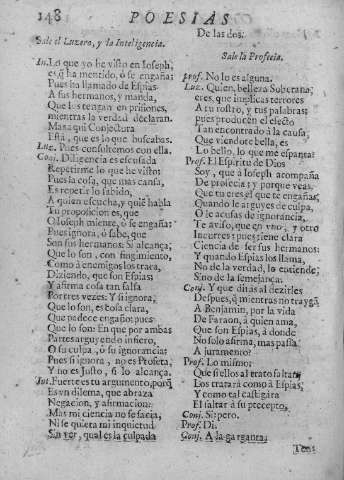 148 POESIAS
Sale el Luzero, y la Inteligencia.
In. Lo que yo he visto en Ioseph,
es, q̃ ha mentido, ò se engaña;
Pues ha llamado de Espias
A sus hermanos, y manda,
Que los tengan en prisiones,
mientras la verdad declaran.
Mas aqui Conjectura
Està, que es lo que buscabas.
Luz. Pues consultemos con ella.
Conj. Diligencia es escusada
Repetirme lo que he visto:
Pues la cosa, que mas cansa,
Es repetir lo sabido,
A quien escucha, y quiẽ habla
Tu proposicion es, que
O Ioseph miente, ò se engaña:
Pues ignora, ò sabe, que
Son sus hermanos: Si alcança,
Que lo son, con fingimiento,
Como à enemigos los trata,
Diziendo, que son Espias:
Y afirma cosa tan falsa
Por tres vezes: Y si ignora,
Que lo son, es cosa clara,
Que padece engaño; pues
Que lo son: En que por ambas
Partes arguyendo infiero,
O su culpa, ò su ignorancia:
Pues si ignora, no es Profeta,
Y no es Justo, si lo alcança.
Int. Fuerte es tu argumento, porq̃
Es vn dilema, que abraza
Negacion, y afirmacion:
Mas mi ciencia no se sacia,
Ni se quieta mi inquietud
Sin ver, qual es la culpada
De las dos.
Sale la Profecia.
Prof. No lo es alguna.
Luz. Quien, belleza Soberana;
eres, que implicas terrores
A tu rostro, y tus palabras;
pues producen el efecto
Tan encontrado à la causa,
Que viendote bella, es
Lo bello, lo que me espanta:
Prof. El Espiritu de Dios
Soy, que à Ioseph acompaña
De profecia; y porque veas,
Que tu eres el que te engañas,
Quando le arguyes de culpa,
O le acusas de ignorancia,
Te aviso, que en vno, y otro
Incurres; pues tiene clara
Ciencia de ser sus hermanos:
Y quando Espias los llama,
No de la verdad, lo entiende;
Sino de la semejança.
Conj. Y que diràs al dezirles
Despues, q̃ mientras no traygã
A Benjamin, por la vida
De Faraon, à quien ama,
Que son Espias, à donde
No solo afirma, mas passa
A juramento?
Prof. Lo mismo:
Que si ellos al trato faltan
Los tratarà como à Espias,
Y como tal castigàra
El faltar à su precepto.
Conj. Si; pero.
Prof. Di.
Conj. A la garganta;